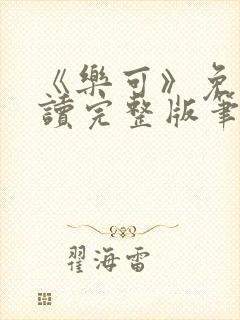 《樂可》免
讀完整版筆
翟海雷